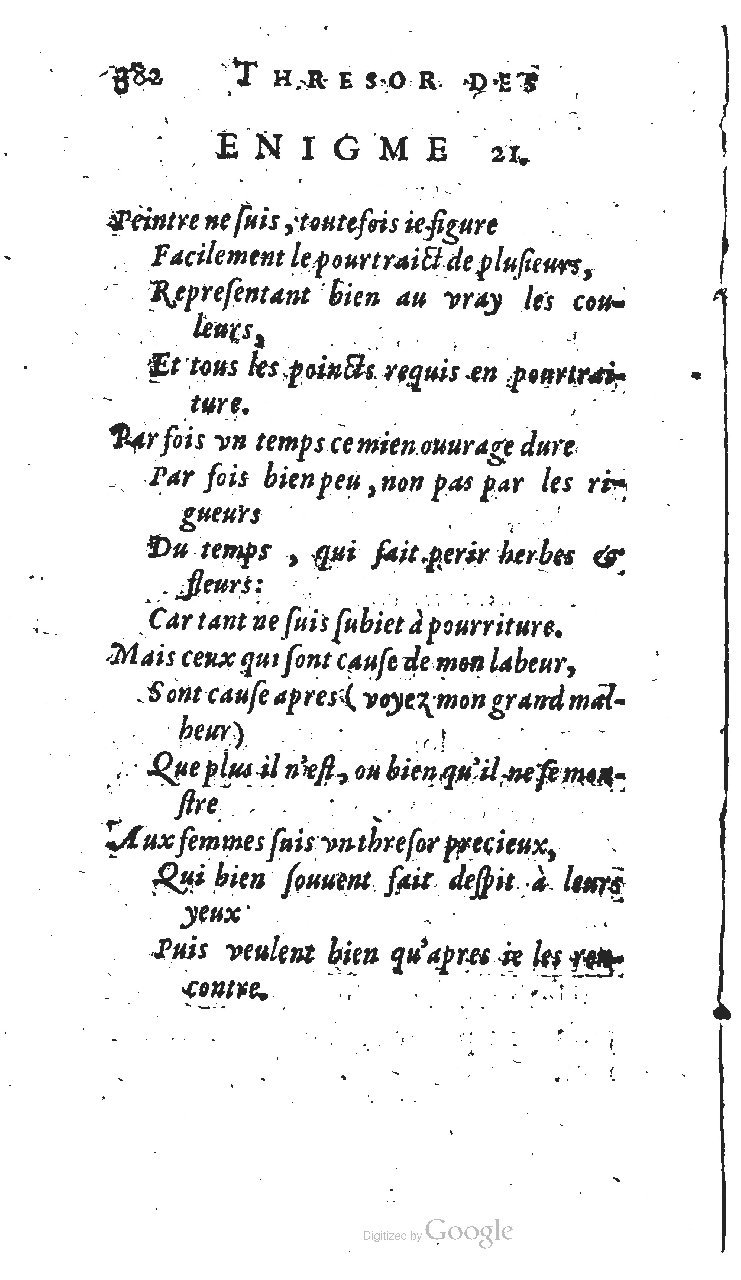 382 THRESOR DES
ENIGME 21.
Peintre ne ſuis, toutefois ie figure
Facilement le pourtraict de pluſieurs,
Repreſentant bien au vray les cou-
leurs,
Et tous les poincts requis en pourtrai-
ture.
Par fois vn temps ce mien ouurage dure
Par fois bien peu, non pas par les ri-
gueurs
Du temps, qui fait perir herbes &
fleurs:
Car tant ne ſuis ſubiet à pourriture.
Mais ceux qui ſont cauſe de mon labeur,
Sont cauſe apres (voyez mon grand mal-
heur)
Que plus il n'eſt, ou bien qu'il ne ſe mon-
ſtre
Aux femmes ſuis vn threſor precieux,
Qui bien ſouuent fait deſpit à leurs
yeux
Puis veulent bien qu'apres ie les ren-
contre.
Digitized by Google